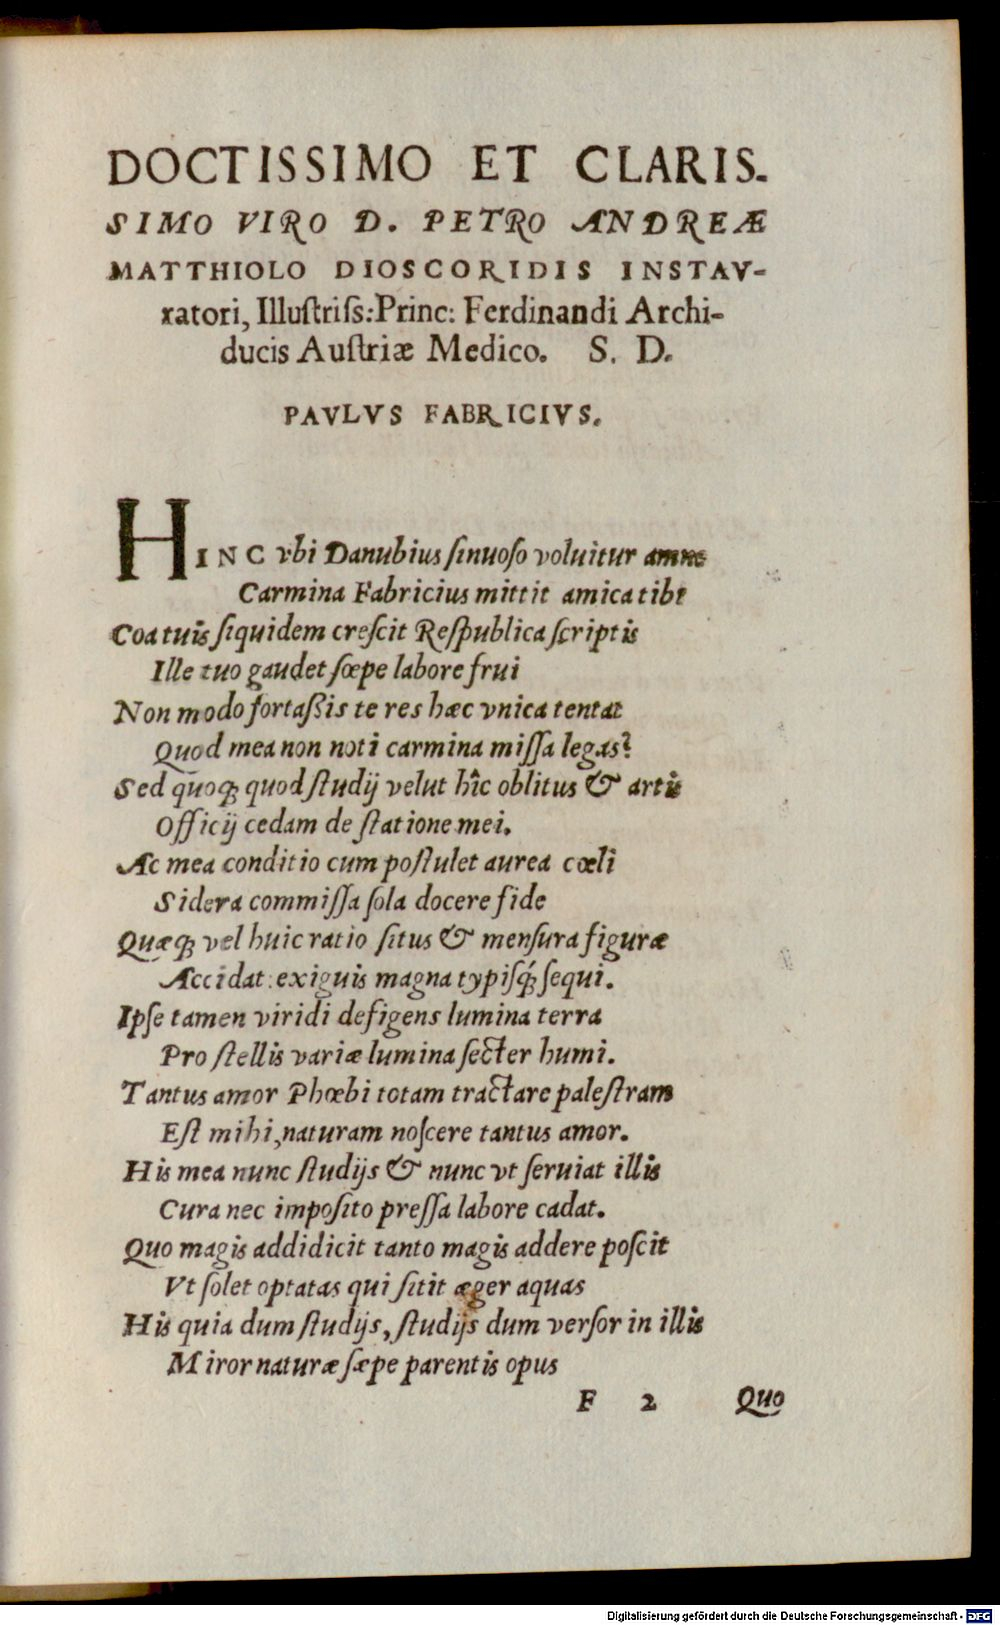 DOCTISSIMO ET CLARIS-
SIMO VIRO D. PETRO ANDREÆ
MATTHIOLO DIOSCORIDIS INSTAV-
ratori, Illuſtriſs: Princ: Ferdinandi Archi-
ducis Auſtriæ Medico. S. D.
PAVLVS FABRICIVS.
HINC vbi Danubius ſinuoſo voluitur amne
Carmina Fabricius mittit amica tibi
Coa tuis ſiquidem creſcit Reſpublica ſcriptis
Ille tuo gaudet ſœpe labore frui
Non modo fortaßis te res hæc vnica tentat
Quod mea non noti carmina miſſa legas?
Sed quoq; quod ſtudij velut hîc oblitus & artis
Officij cedam de ſtatione mei.
Ac mea conditio cum poſtulet aurea cœli
Sidera commiſſa ſola docere fide
Quæq; vel huic ratio ſitus & menſura figuræ
Accidat: exiguis magna typiſq́; ſequi.
Ipſe tamen viridi defigens lumina terra
Pro ſtellis variæ lumina ſecter humi.
Tantus amor Phœbi totam tractare paleſtram
Eſt mihi, naturam noſcere tantus amor.
His mea nunc ſtudijs & nunc vt ſeruiat illis
Cura nec impoſito preſſa labore cadat.
Quo magis addidicit tanto magis addere poſcit
Vt ſolet optatas qui ſitit æger aquas
His quia dum ſtudijs, ſtudijs dum verſor in illis
Miror naturæ ſæpe parentis opus
F 2 Quo
Digitalisierung gefördert durch die Deutsche Forschungsgemeinschaft - DFG